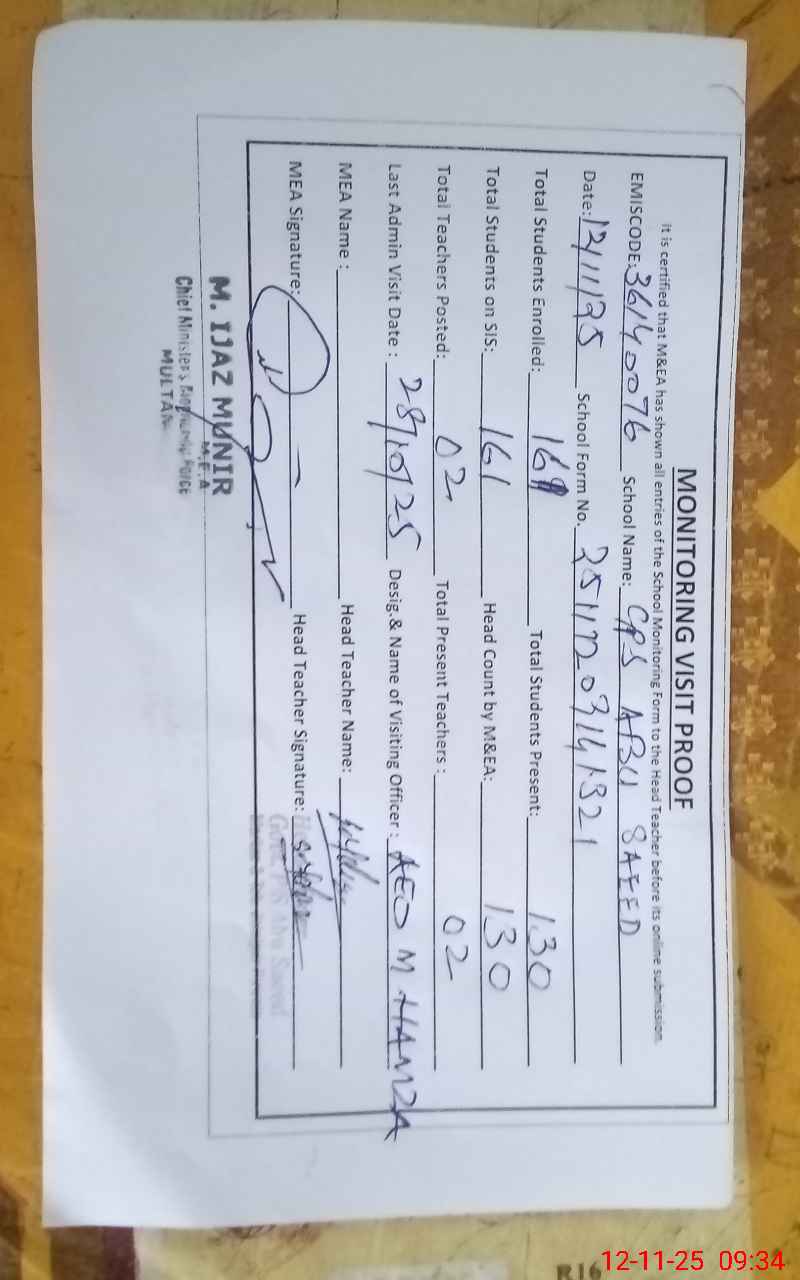 MONITORING VISIT PROOF
It is certified that M&EA has shown all entries of the School Monitoring Form to the Head Teacher before its online submission.
EMISCODE: 36140076 School Name: GPS ABU SAEED
Date: 12/11/25 School Form No. 25111203141321
Total Students Enrolled: 161 Total Students Present: 130
Total Students on SIS: 161 Head Count by M&EA: 130
Total Teachers Posted: 02 Total Present Teachers : 02
Last Admin Visit Date : 28/10/25 Desig.& Name of Visiting Officer : AEO M HAMZA
MEA Name : Head Teacher Name:
MEA Signature: Head Teacher Signature:
Abu Saeed
M. IJAZ MUNIR
M.E.A
Chief Minister's Monitoring Force
MULTAN
R16
12-11-25 09:34